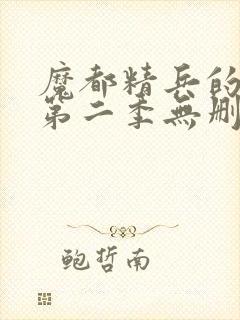 魔都精兵的
第二季無刪
鲍哲南